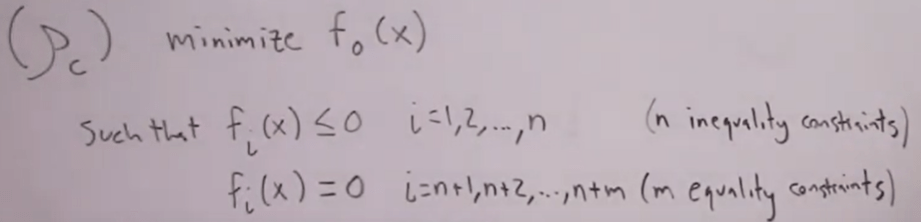 (P_c) minimize f_0(x)
Such that f_i(x) ≤ 0 i=1,2,...,n (n inequality constraints)
f_i(x) = 0 i=n+1,n+2,...,n+m (m equality constraints)